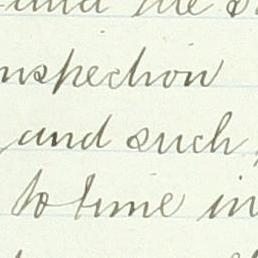 and the
nspection
and such
to time in